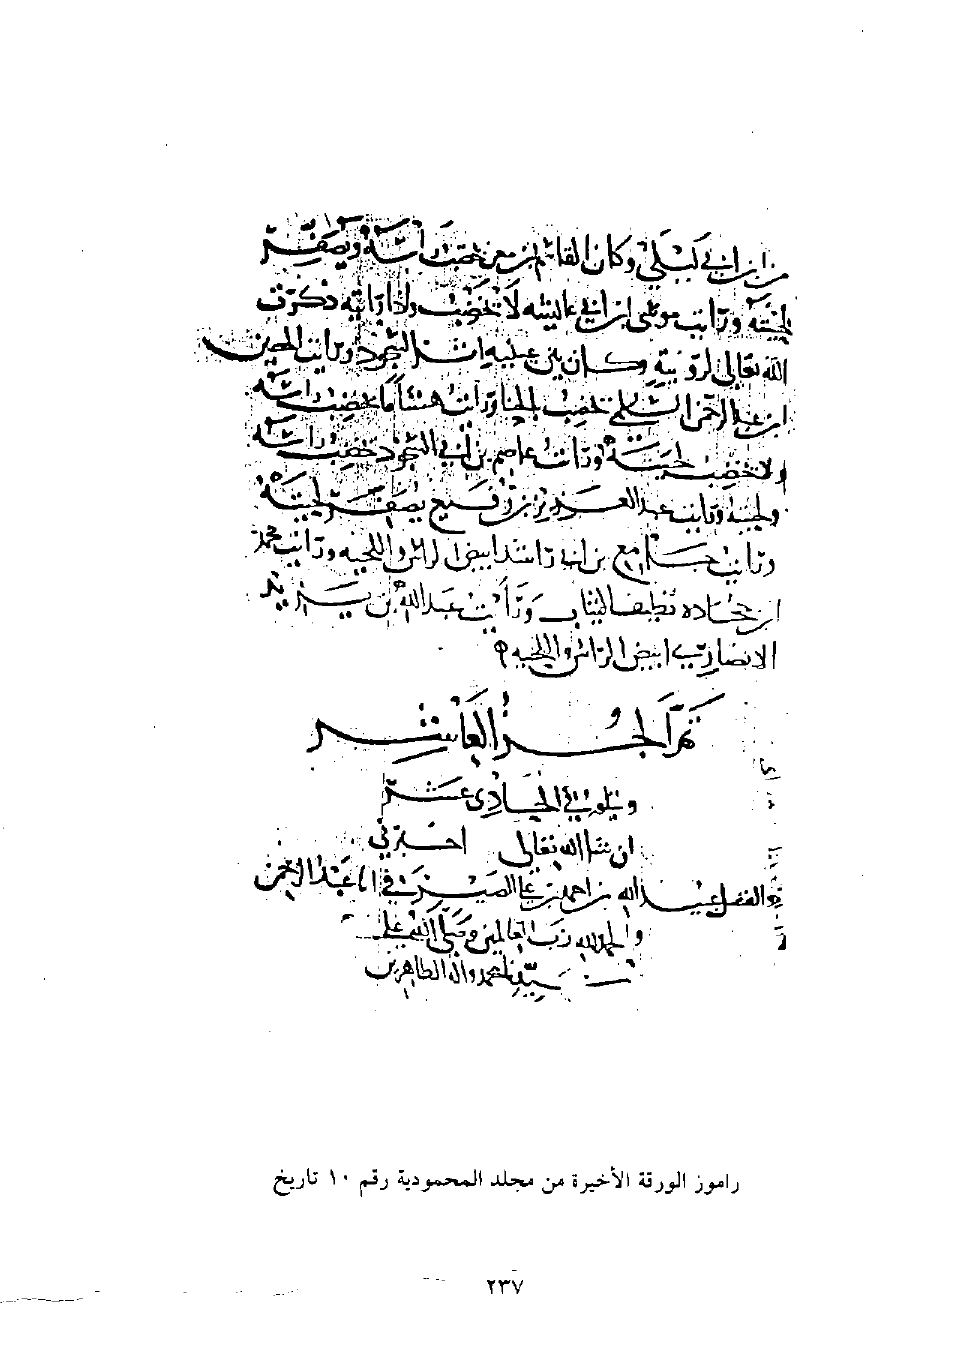 من ابن ابي ليلى وكان القاسم بن معن يخضب راسه ويصفر
لحيته ورايت موسى بن ابي عايشه لا يخضب واذا رايته ذكرت
الله تعالى لرويته وكان بين عينيه اثر السجود ورايت الحصين
ابن عبد الرحمن السلمي يخضب بالحنا ورايت هشاما يخضب راسه
ولا يخضب لحيته ورايت عاصم بن ابي النجود يخضب راسه
ولحيته ورايت عبد العزيز بن رفيع يصفر لحيته
ورايت جامع بن ابي راشد ابيض الراس واللحيه ورايت محمد
ابن جحاده نظيف الثياب ورأيت عبد الله بن يزيد
الانصاري ابيض الراس واللحيه
تم الجزء العاشر
ويتلوه في الحادي عشر
ان شا الله تعالى اخبرني
ابو الفضل عبيد الله بن احمد بن علي الصيرفي انا عبد الرحمن
والحمد لله رب العالمين وصلى الله على
سيدنا محمد واله الطاهرين
راموز الورقة الأخيرة من مجلد المحمودية رقم ١٠ تاريخ
٢٣٧